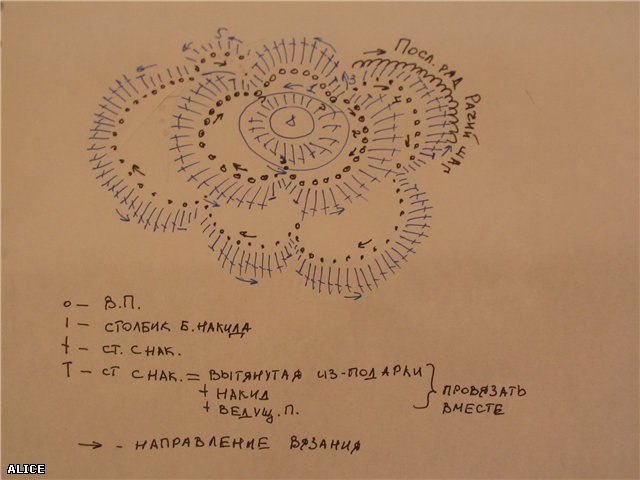 5
Посл. ряд Рачий шаг
1
3
4
2
8
о - В.П.
ı - СТОЛБИК Б.НАКИДА
† - СТ. С НАК.
Т - СТ С НАК. = ВЫТЯНУТАЯ ИЗ-ПОД АРКИ
+ НАКИД
+ ВЕДУЩ. П.
ПРОВЯЗАТЬ
ВМЕСТЕ
→ - НАПРАВЛЕНИЕ ВЯЗАНИЯ
ALICE